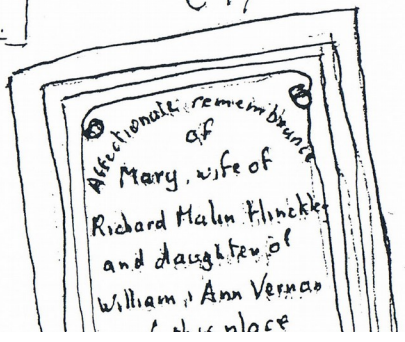 Affectionate remembrance
of
Mary, wife of
Richard Malin Hinckley
and daughter of
William & Ann Vernon
of this place